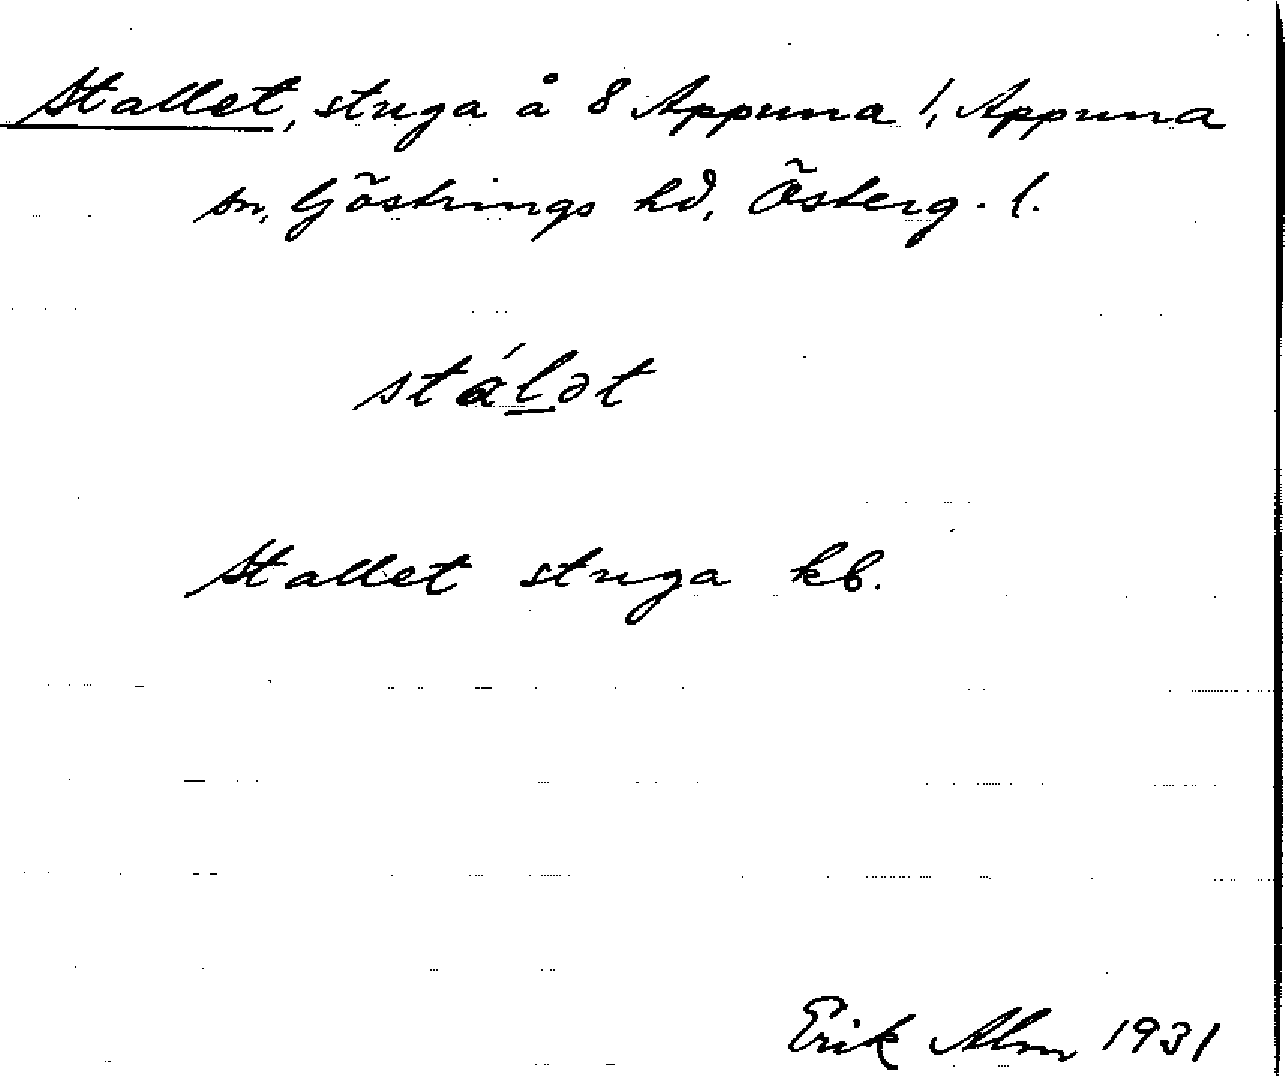 Stallet, stuga å 8 Appuna 1, Appuna
sn, Göstrings hd, Österg. l.
stál̲ət
Stallet stuga kb.
Erik Alm 1931